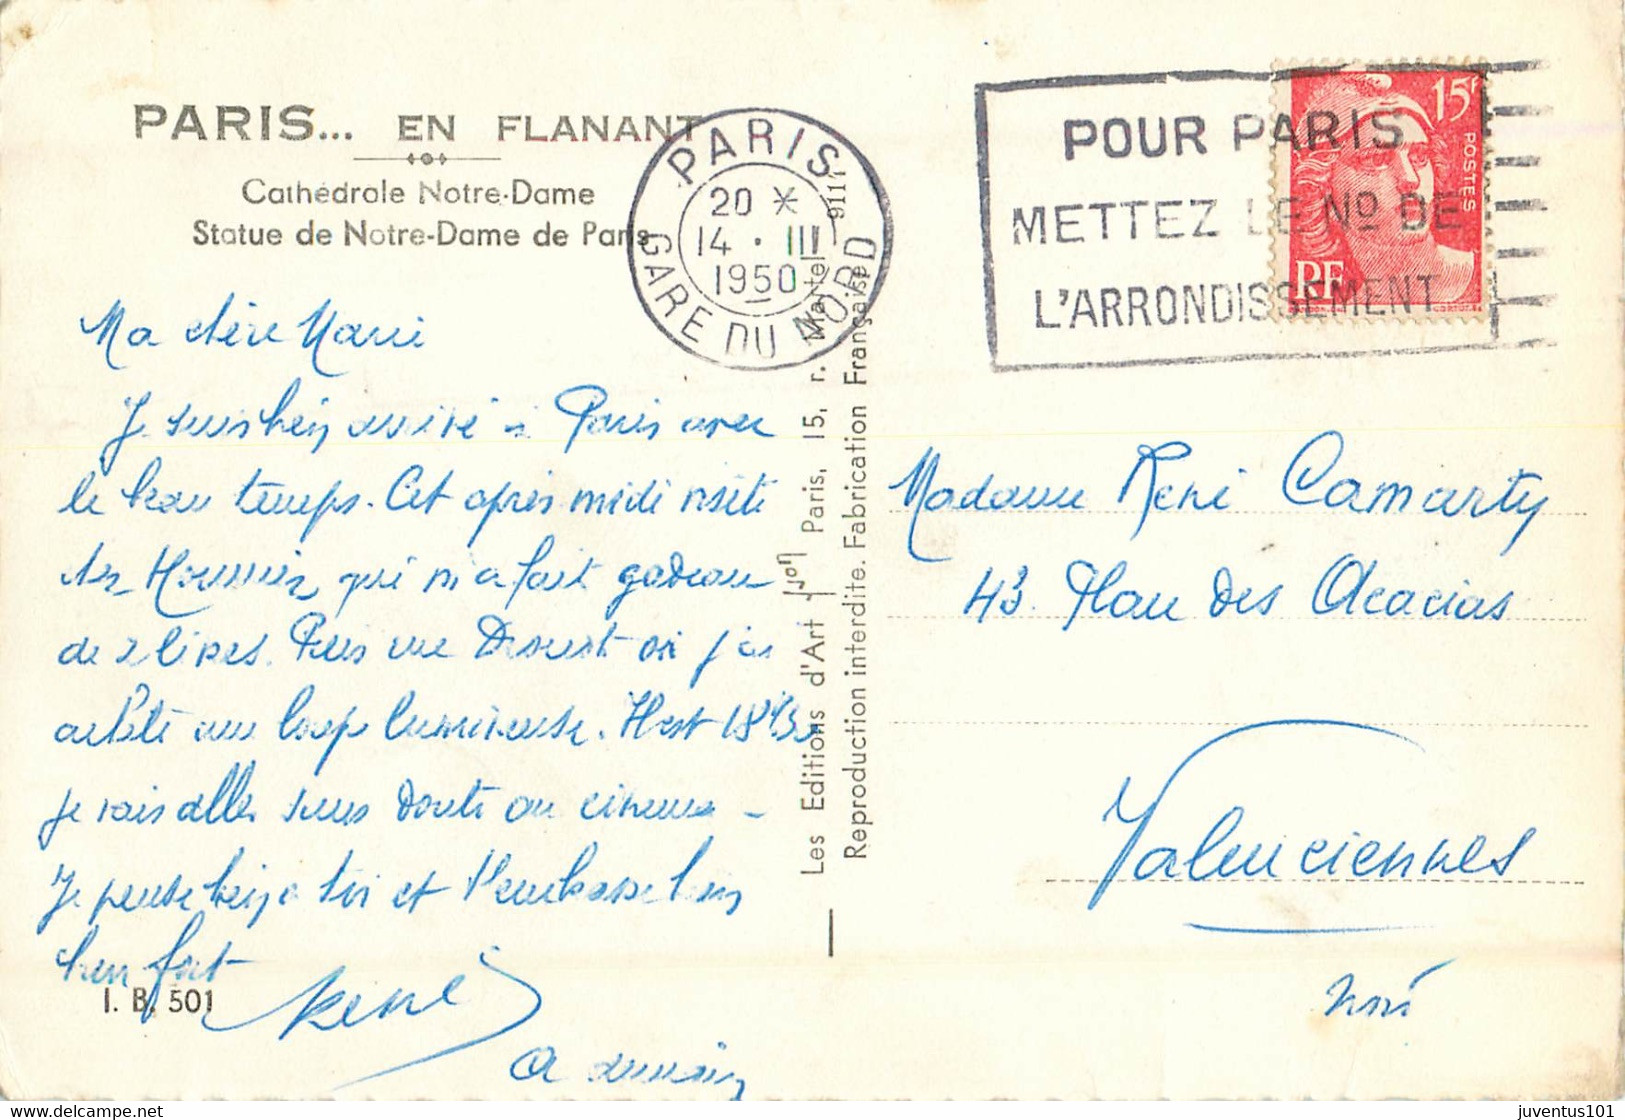 PARIS... EN FLANANT
Cathédrale Notre-Dame
Statue de Notre-Dame de Paris
PARIS
20 *
14 · III
1950
GARE DU NORD
POUR PARIS
METTEZ LE Nº DE
L'ARRONDISSEMENT
15F
POSTES
RF
GANDON
CORTOT
Ma chère Marie
Je suis bien arrivé à Paris avec
le beau temps. Cet après midi visite
qui m'a fait gadeau
de 2 livres. Puis vue Drouot où j'ai
acheté une loupe lumineuse. Il est 18
je vais aller sans doute au cinéma -
Je pense bien à toi et t'embrasse bien
bien fort
René
A demain
I. B. 501
Les Editions d'Art Yvon Paris, 15, r. Martel - 9111
Reproduction interdite. Fabrication Française
Madame René Camarty
43 Place des Acacias
Valenciennes
Nord
juventus101